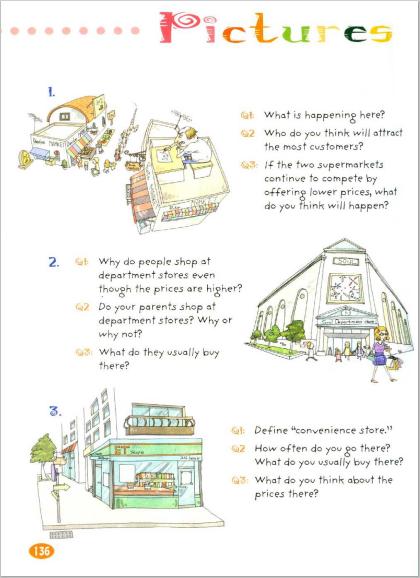 Pictures
1.
Q1: What is happening here?
Q2 Who do you think will attract
the most customers?
Q3: If the two supermarkets
continue to compete by
offering lower prices, what
do you think will happen?
2.
Q1: Why do people shop at
department stores even
though the prices are higher?
Q2: Do your parents shop at
department stores? Why or
why not?
Q3: What do they usually buy
there?
Department store
3.
Store
Q1: Define “convenience store.”
Q2 How often do you go there?
What do you usually buy there?
Q3: What do you think about the
prices there?
136